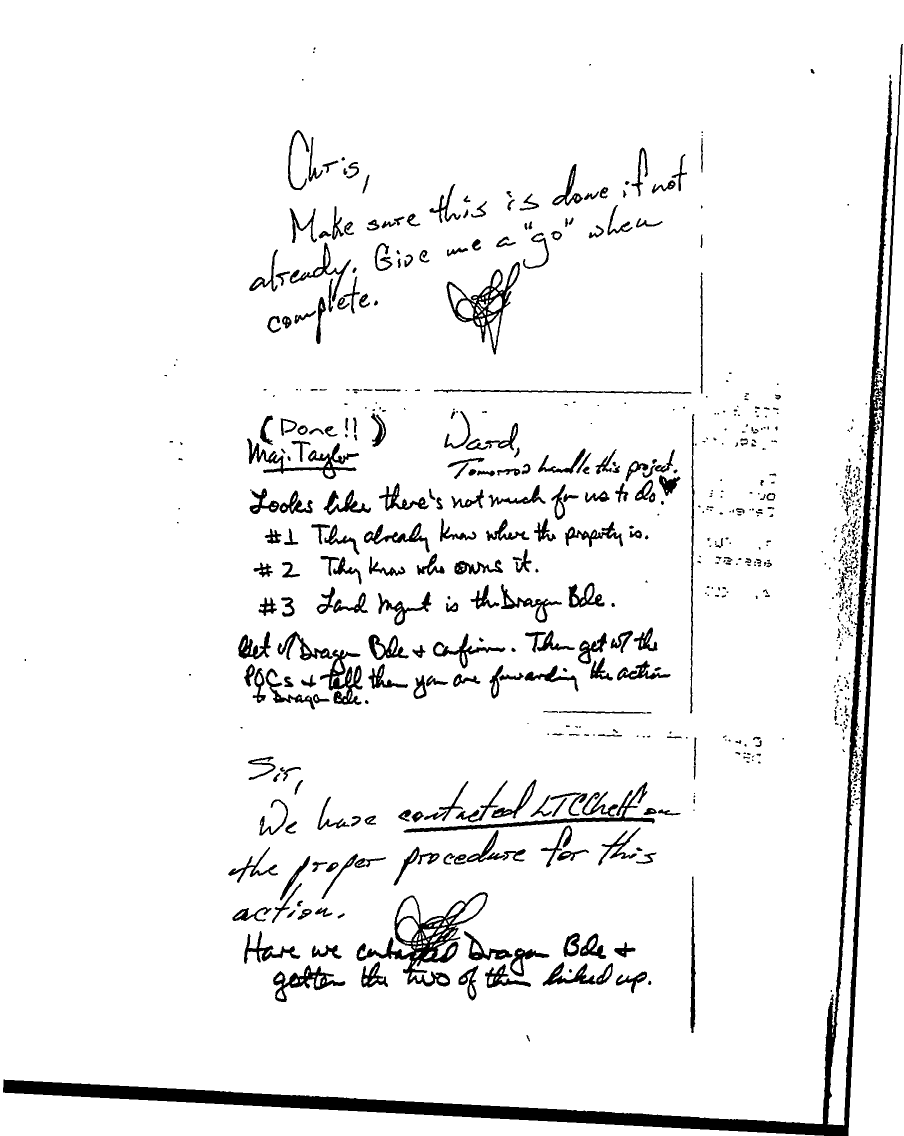 Chris,
Make sure this is done if not
already. Give me a "go" when
complete.
(Done!!)
Maj. Taylor
Ward,
Tomorrow handle this project.
Looks like there's not much for us to do.
#1 They already know where the property is.
#2 They know who owns it.
#3 Land Mgmt is the Dragon Bde.
Get w/ Dragon Bde + confirm. Then get w/ the
POCs + tell them you are forwarding the action
to Dragon Bde.
Sir,
We have contacted LTC on
the proper procedure for this
action.
Have we contacted Dragon Bde +
gotten the two of them linked up.